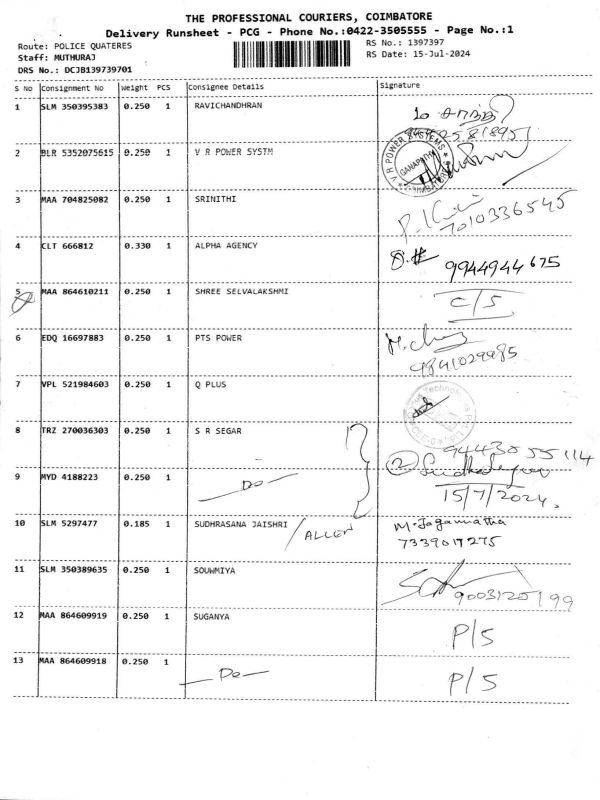 THE PROFESSIONAL COURIERS, COIMBATORE
Delivery Runsheet - PCG - Phone No.:0422-3505555 - Page No.:1
Route: POLICE QUATERES
RS No.: 1397397
Staff: MUTHURAJ
RS Date: 15-Jul-2024
DRS No.: DCJB139739701
S No Consignment No Weight PCS Consignee Details Signature
1 SLM 350395383 0.250 1 RAVICHANDHRAN
2 BLR 5352075615 0.250 1 V R POWER SYSTM
V R POWER SYSTEMS
GANAPATHY
COIMBATORE
3 MAA 704825082 0.250 1 SRINITHI
7010336545
4 CLT 666812 0.330 1 ALPHA AGENCY
9944944675
5 MAA 864610211 0.250 1 SHREE SELVALAKSHMI C/S
6 EDQ 16697883 0.250 1 PTS POWER
9841029985
7 VPL 521984603 0.250 1 Q PLUS
8 TRZ 270036303 0.250 1 S R SEGAR
9443055114
9 MYD 4188223 0.250 1 Do 2
15/7/2024.
10 SLM 5297477 0.185 1 SUDHRASANA JAISHRI / ALLEN M. Jagannatha
7339017275
11 SLM 350389635 0.250 1 SOUWMIYA
9003120199
12 MAA 864609919 0.250 1 SUGANYA P/S
13 MAA 864609918 0.250 1 Do P/S